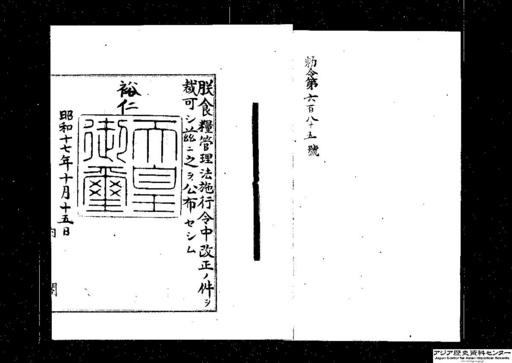 勅令第六百八十五號
朕食糧管理法施行令中改正ノ件ヲ
裁可シ茲ニ之ヲ公布セシム
裕仁
天皇
御璽
昭和十七年十月十五日
内閣
アジア歴史資料センター
Japan Center for Asian Historical Records